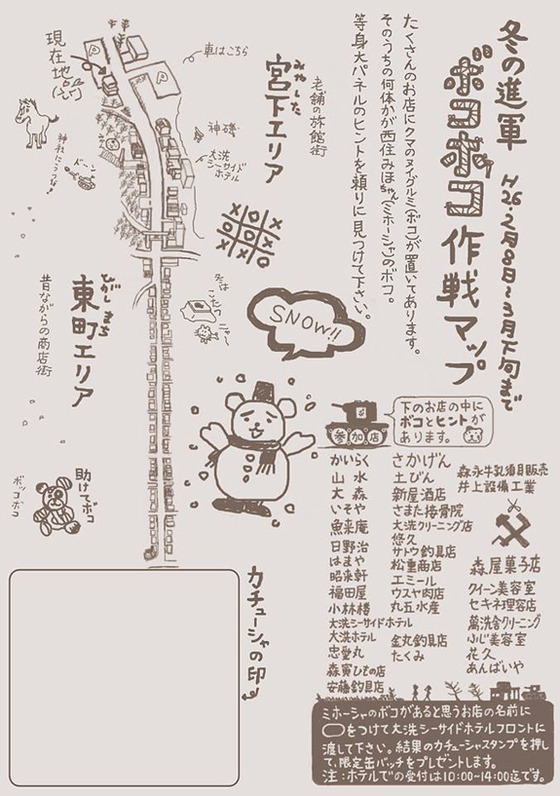 冬の進軍
ボコボコ作戦マップ
H26.2月8日〜3月下旬まで
たくさんのお店にクマのヌイグルミ(ボコ)が置いてあります。
そのうちの何体かが西住みほちゃん(ミホーシャ)のボコ。
等身大パネルのヒントを頼りに見つけて下さい。
老舗の旅館街
みやした
宮下エリア
車はこちら
現在地
神磯
大洗シーサイドホテル
ドーン
ひがしまち
東町エリア
昔ながらの商店街
冬は
こたつ
ニャ〜
SNOW!!
助けてボコ
ボッコボコ
下のお店の中に
ボコとヒントが
あります。
参加店
かいらく
山水
大森
いそや
魚来庵
日野治
はまや
昭来軒
福田屋
小林楼
大洗シーサイドホテル
大洗ホテル
忠愛丸
森寅ひもの店
安藤釣具店
さかげん
土びん
新屋酒店
さまた接骨院
大洗クリーニング店
悠久
サトウ釣具店
松重商店
エミール
ウスヤ肉店
丸五水産
金丸釣具店
たくみ
森永牛乳須貝販売
井上設備工業
森屋菓子店
クイーン美容室
セキネ理容店
萬洗舎クリーニング
ふじ美容室
花久
あんばいや
カチューシャの印
ミホーシャのボコがあると思うお店の名前に
〇をつけて大洗シーサイドホテルフロントに
渡して下さい。結果のカチューシャスタンプを押し
て、限定缶バッチをプレゼントします。
注:ホテルでの受付は10:00-14:00迄です。